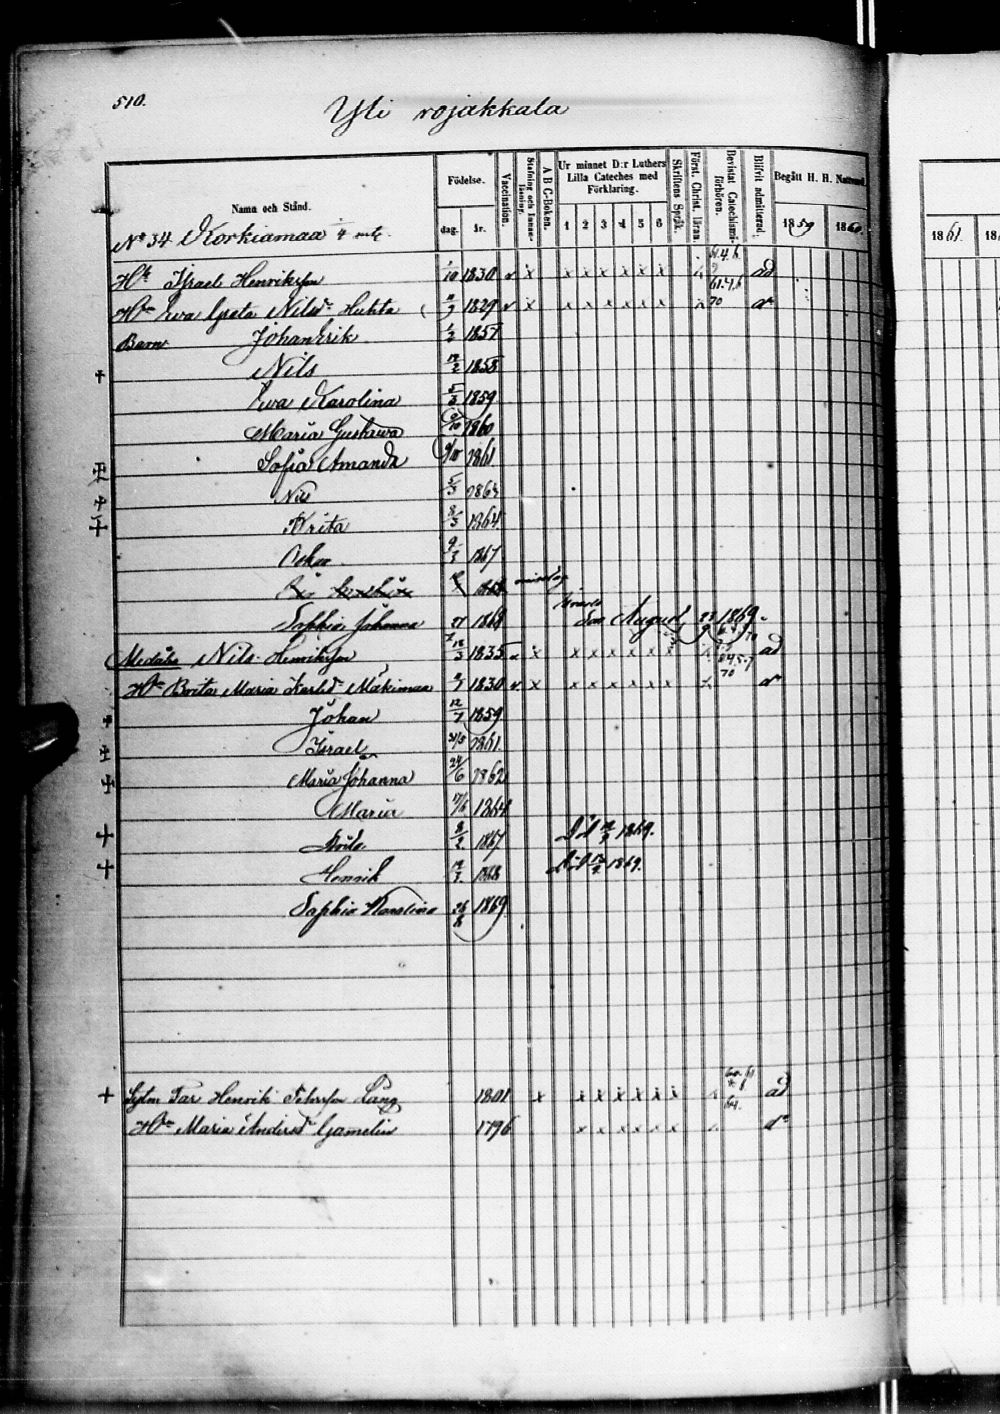 510.
Yli rojakkala
Nama och Stånd.
Födelse.
dag. år.
Vaccination.
Stafning och Innanläsning.
A B C-Boken.
Ur minnet D:r Luthers Lilla Cateches med Förklaring.
1 2 3 4 5 6
Skriftens Språk.
Först. Christ. läran.
Bevistat Catechismiförhören.
Blifvit admitterad.
Begått H. H. Nattvard.
1859 1860
1861
No 34 Korkiamaa
Israel Henriksson 1/10 1830 v x x x x x x x ad
Ewa Greta Nilsd. Huhta 1829 v x x x x x x x
Barn Johan Erik 1857
Nils 1858
Ewa Karolina 5/3 1859
Maria Gustawa 1860
Sofia Amanda 1861
Nils 5/3 1863
Brita 8/3 1864
Oskar 9/3 1867
1868
Sophia Johanna 1868 August 1869
Nils Henriksson 1835 x x x x x x x ad
Brita Maria Karlsd. Mäkimaa 1830 v x x x x x x x
Johan 12/7 1859
Israel 31/5 1861
Maria Johanna 24/6 1862
Maria 17/6 1864
8/2 1867 Död 1869.
Henrik 1868 Död 1869.
Sophia Karolina 26/8 1869
Far Henrik Lång 1801 x x x x x x x ad
Maria Andersd. Gamelin 1796 x x x x x x